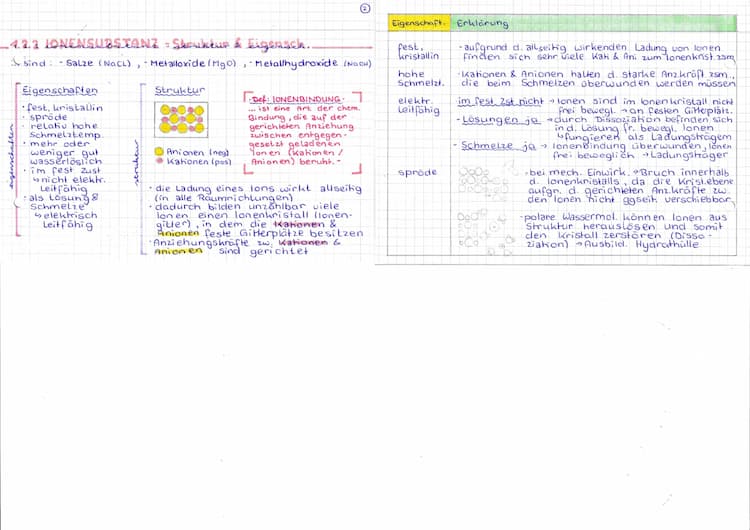 2
4.2.2 IONENSUBSTANZ = Struktur & Eigensch.
↳ sind: - Salze (NaCl), - Metalloxide (MgO), - Metallhydroxide (NaOH)
eigenschaften
Eigenschaften
· fest, kristallin
· spröde
· relativ hohe
Schmelztemp.
· mehr oder
weniger gut
wasserlöslich
· im fest. Zust.
↳ nicht elektr.
Leitfähig
· als Lösung &
Schmelze
↳ elektrisch
Leitfähig
struktur
Struktur
Anionen (neg)
Kationen (pos)
· Def: IONENBINDUNG ·
... ist eine Art der chem.
Bindung, die auf der
gerichteten Anziehung
zwischen entgegen-
gesetzt geladenen
Ionen (Kationen /
Anionen) beruht. -
· die Ladung eines Ions wirkt allseitig
(in alle Raumrichtungen)
· dadurch bilden unzählbar viele
Ionen einen Ionenkristall (Ionen-
gitter), in dem die Kationen &
Anionen feste Gitterplätze besitzen
· Anziehungskräfte zw. Kationen &
Anionen sind gerichtet
Eigenschaft. Erklärung
fest, kristallin
· aufgrund d. allseitig wirkenden Ladung von Ionen
finden sich sehr viele Kat. & Ani. zum Ionenkrist. zsm.
hohe Schmelzt.
· Kationen & Anionen halten d. starke Anz.kräft zsm.,
die beim. Schmelzen überwunden werden müssen
elektr. Leitfähig
im fest. Zst. nicht → Ionen sind im Ionenkristall nicht
frei bewegl. → an festen Gitterplätz.
- Lösungen ja → durch Dissoziation befinden sich
in d. Lösung fr. bewegl. Ionen
↳ fungieren als Ladungsträgern
- Schmelze ja → Ionenbindung überwunden, Ionen
frei beweglich → Ladungsträger
spröde
· bei mech. Einwirk. → Bruch innerhalb
d. Ionenkristalls, da die Krist.ebene
aufgr. d. gerichteten Anz.kräfte zw.
den Ionen nicht ggseit. verschiebbar
· polare Wassermol. können Ionen aus
Struktur herauslösen und somit
den Kristall zerstören (Disso-
ziation) → Ausbild. Hydrathülle